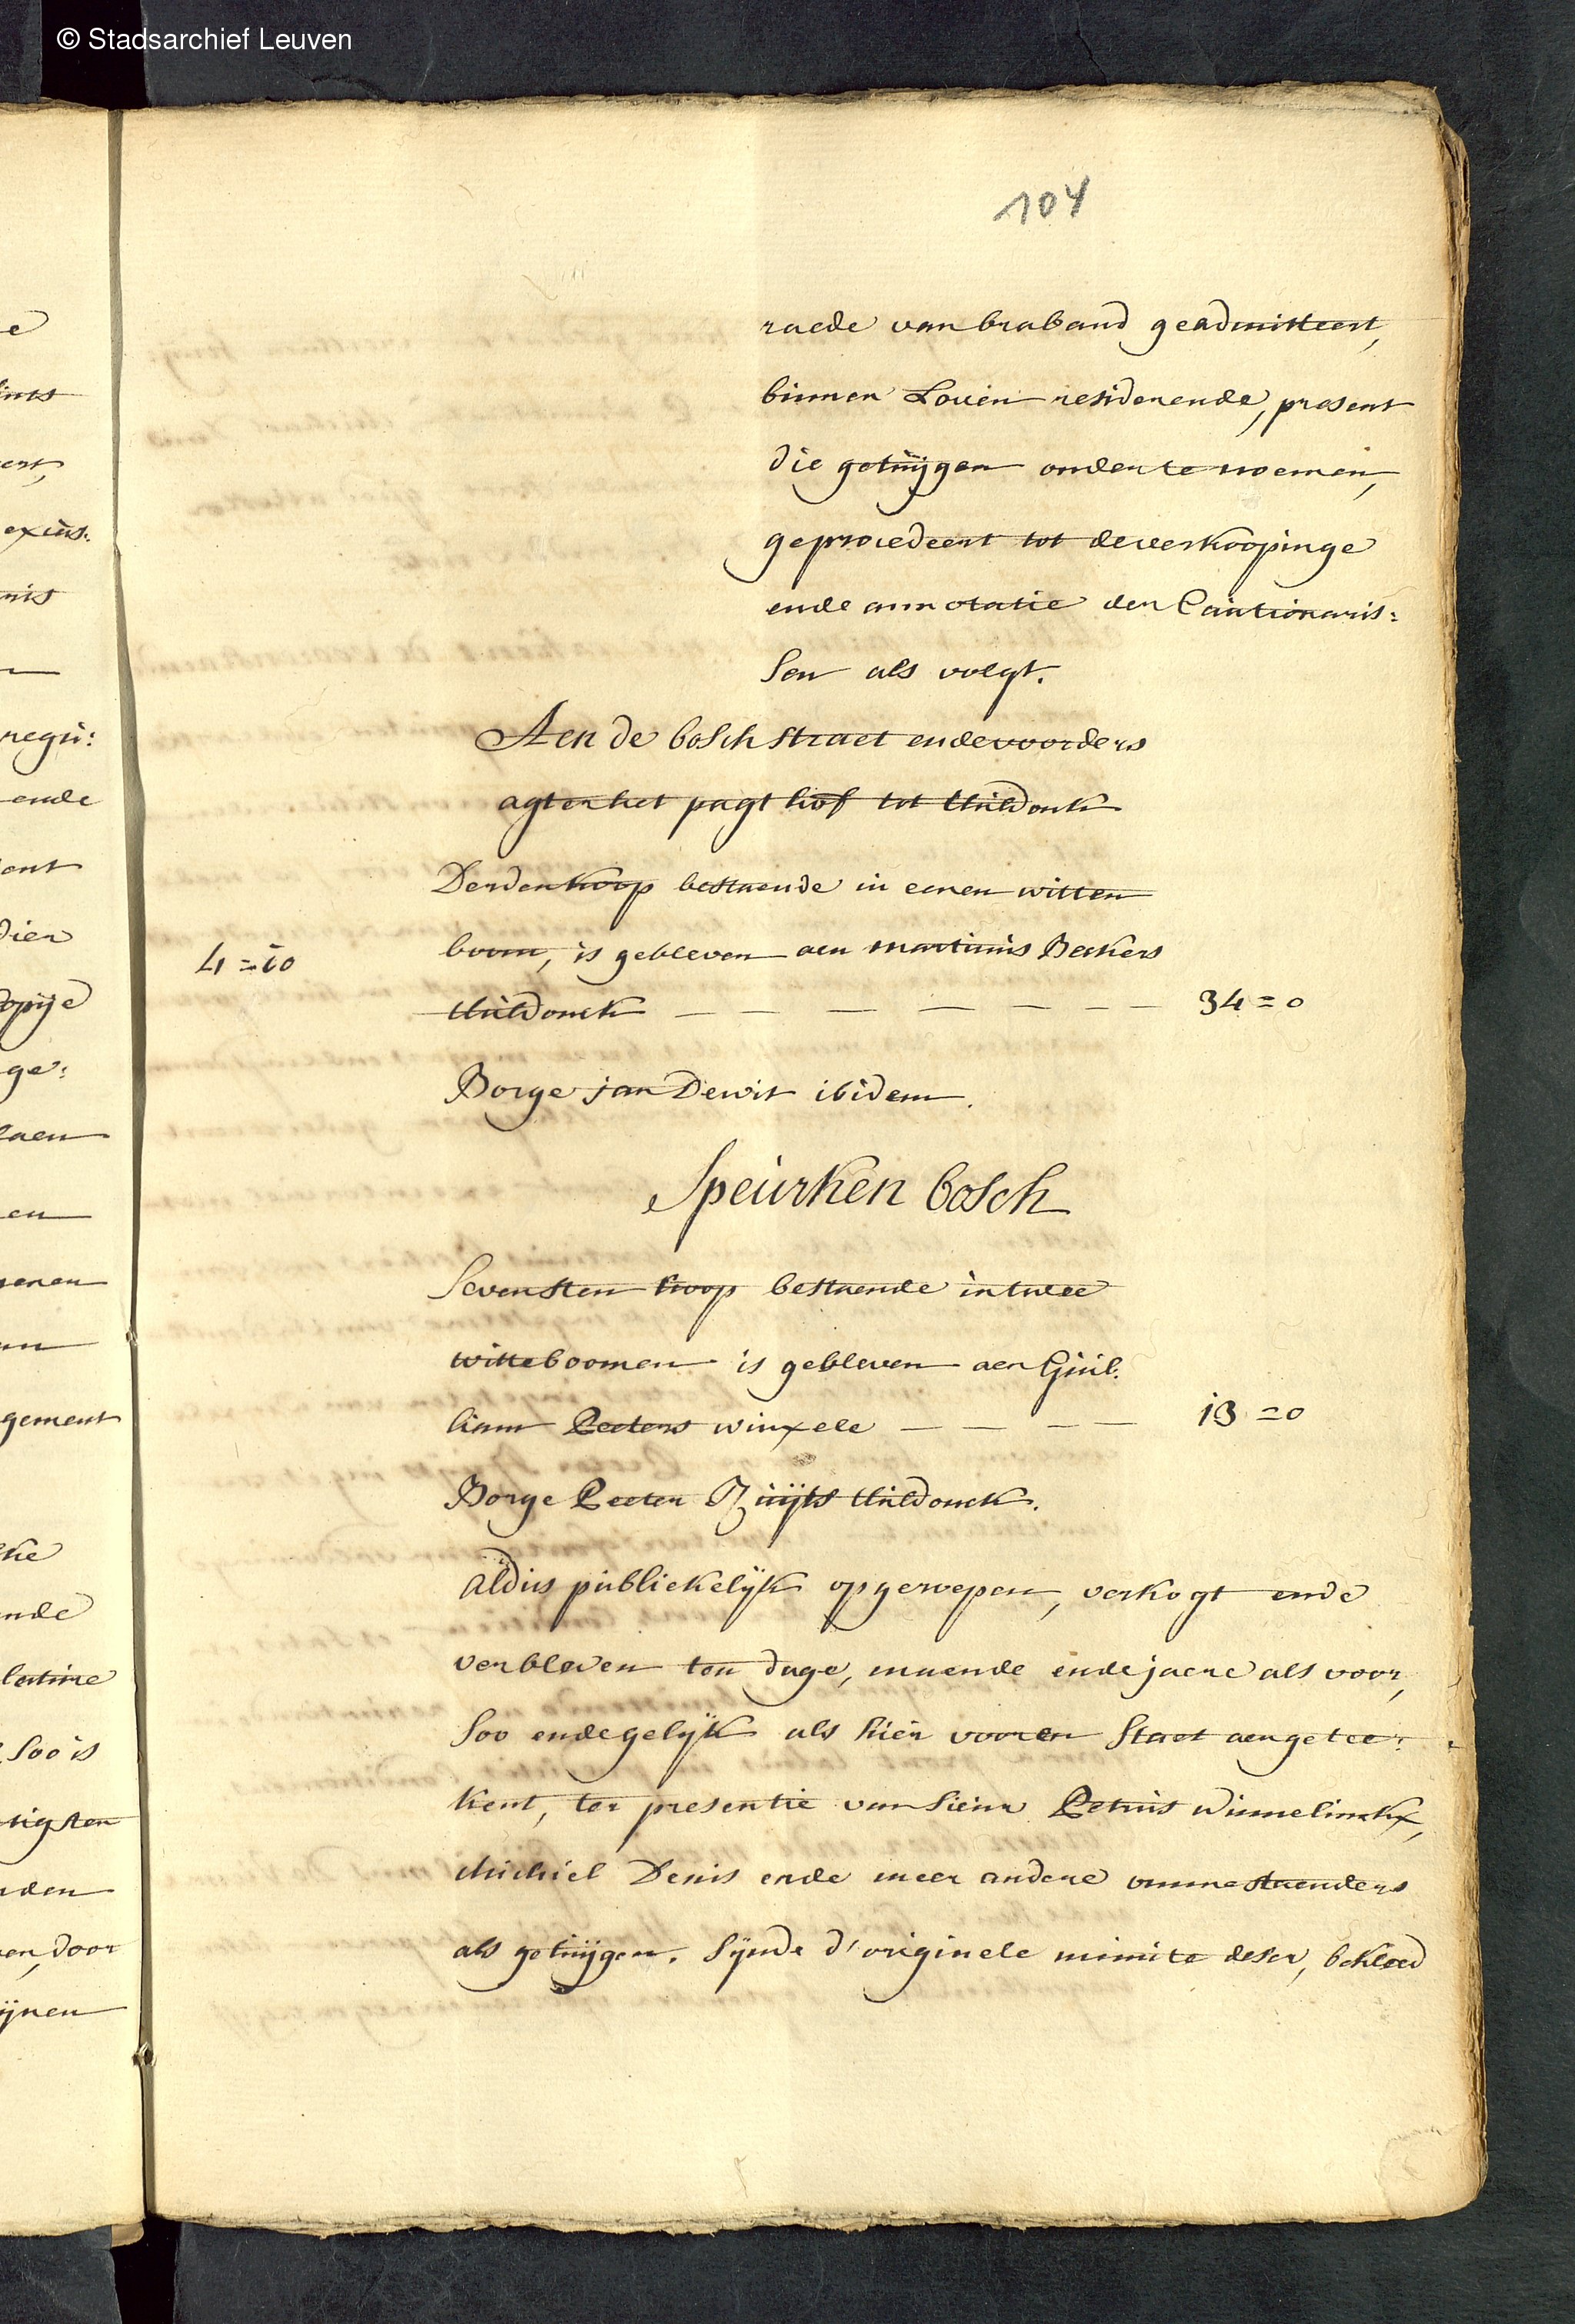 © Stadsarchief Leuven
104
raede van braband geadmitteert,
binnen Loven residerende, present
die getuijgen onder te noemen,
geprocedeert tot de verkoopinge
ende annotatie der Cautionaris:
sen als volgt.
Aen de bosch straet ende voorders
agter het pagt hof tot Uuldonk
Derden koop bestaende in eenen witten
boom, is gebleven aen martinus Beckers
4=10
Uuldonck — — — — — — — 34=0
Borge jan Dewit ibidem.
Speurken bosch
Sevensten koop bestaende in twee
witte boomen is gebleven aen Guil:
liam Peeters winxele — — — — 13=0
Borge Peeter Buijts Uuldonck.
aldus publiekelijk opgeroepen, verkogt ende
verbleven ten dage, maende ende jaere als voor,
soo ende gelijk als hier vooren staet aengetee:
kent, ter presentie van sieur Petrus Wimelinckx,
Michiel Denis ende meer andere ommestaenders
als getuijgen. Sijnde d'originele minute deser, bekleed
e
ert,
exûs:
nis
regu:
ende
ent
dier
copije
ge:
laen
en
gement
ende
soo is
tigsten
rden
en, door
ijnen